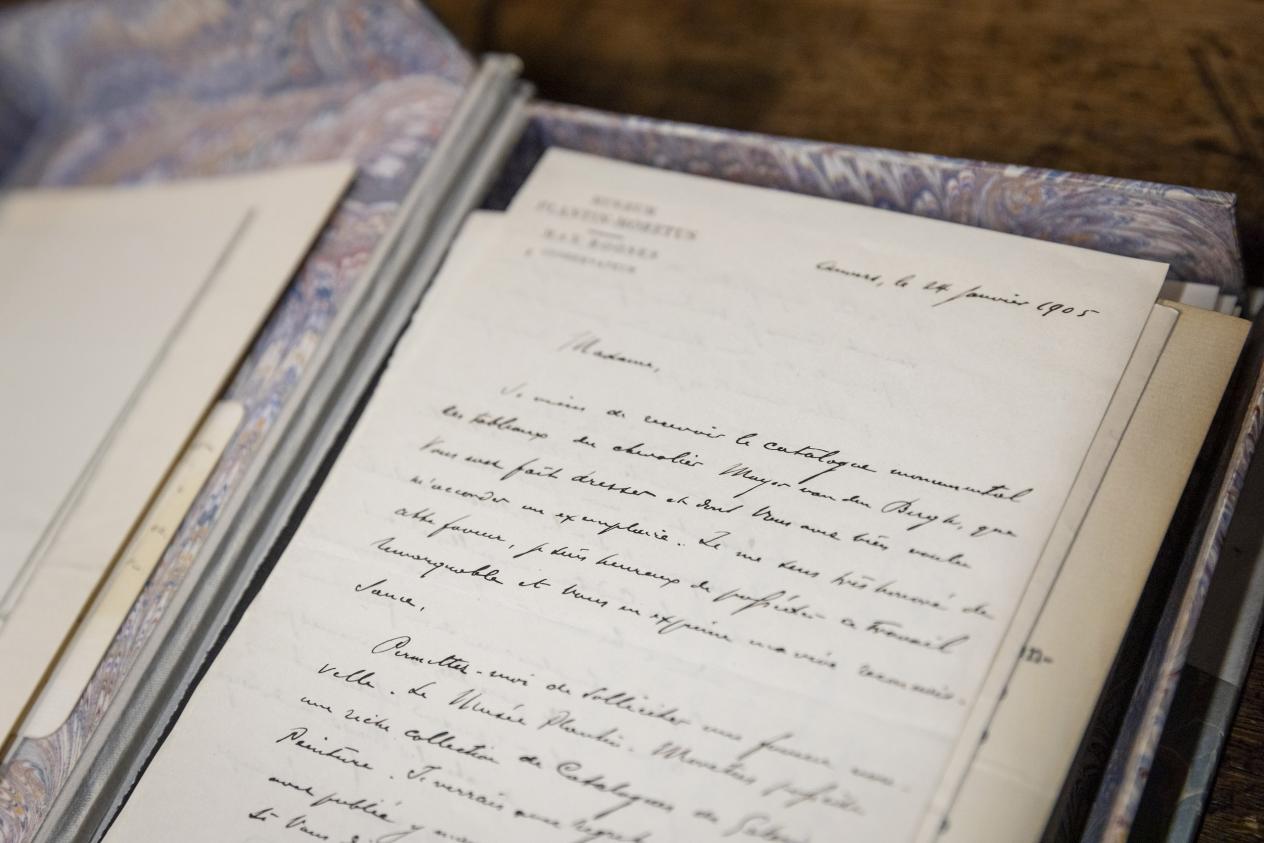 MUSEUM
PLANTIN-MORETUS
MAX ROOSES
CONSERVATEUR
Anvers, le 24 janvier 1905
Madame,
Je viens de recevoir le catalogue monumental
des tableaux du chevalier Mayer van den Bergh, que
Vous avez fait dresser et dont Vous avez bien voulu
m'accorder un exemplaire. Je me sens très honoré de
cette faveur, je suis heureux de posséder ce travail
remarquable et Vous en exprime ma vive reconnais-
sance.
Permettez-moi de solliciter une faveur nou-
velle. Le Musée Plantin-Moretus possède
une riche collection de Catalogues de
Peinture. Je verrais avec regret
avez publié y
Si Vous